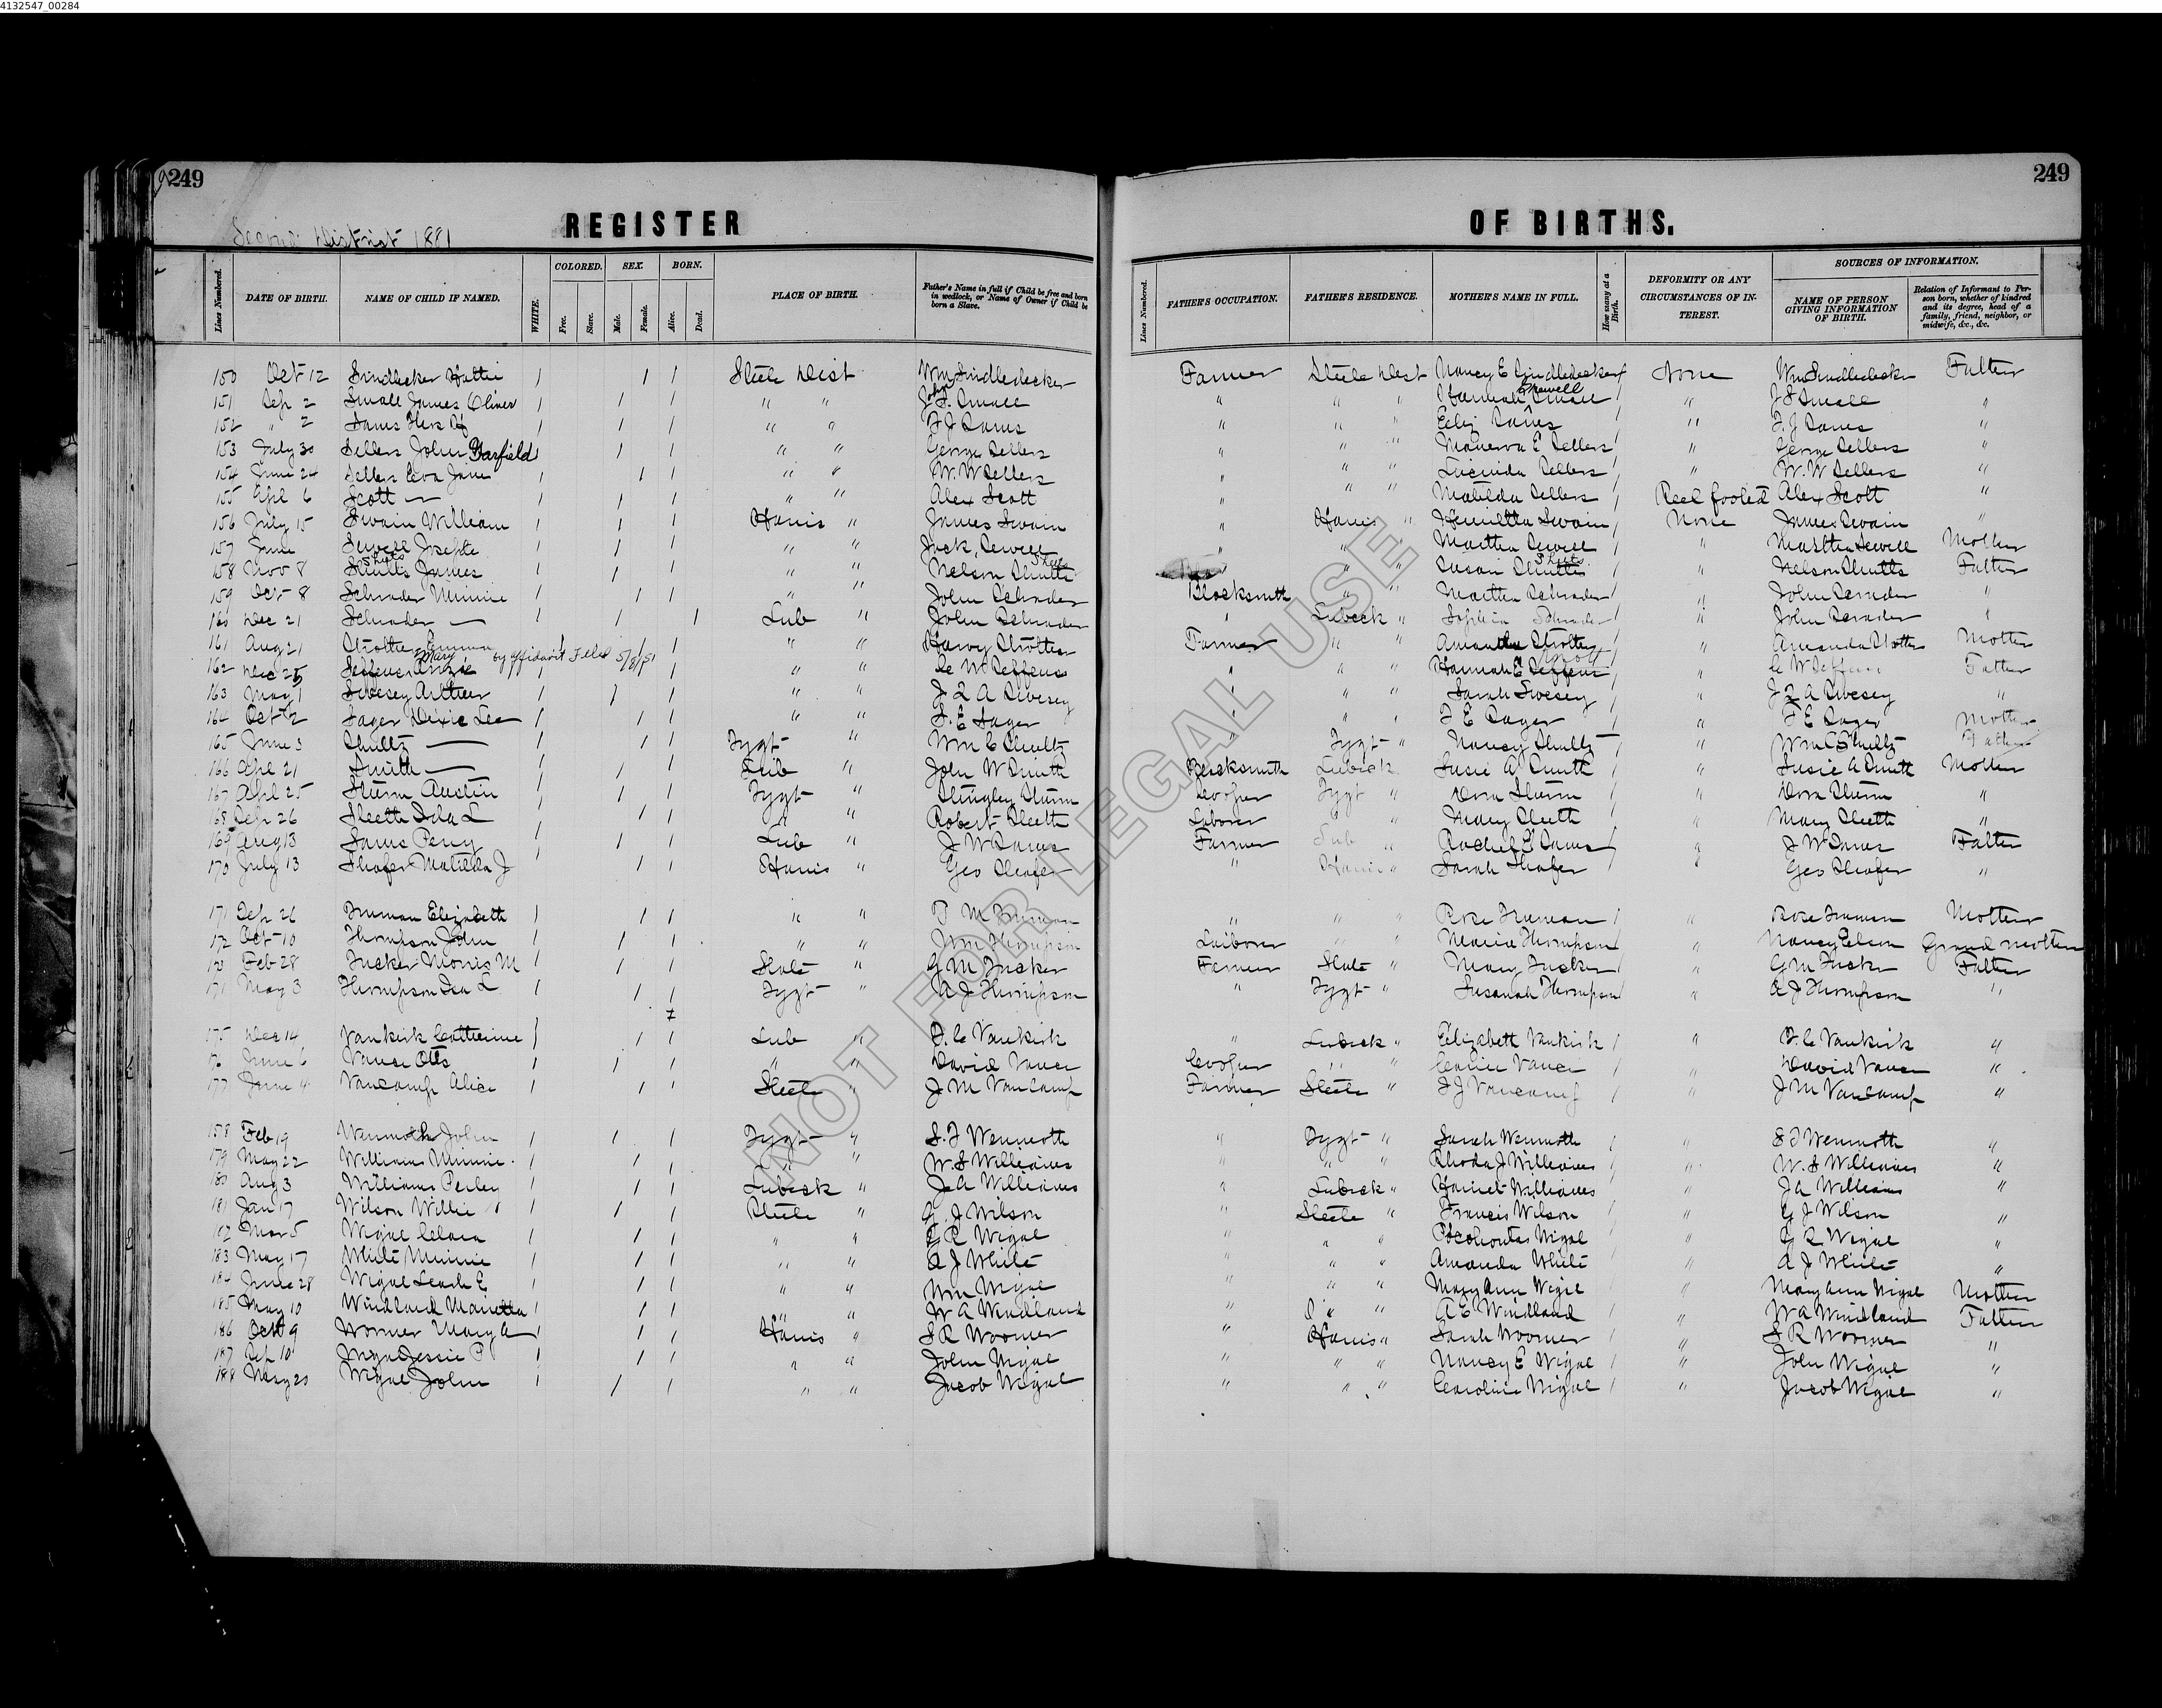 4132547_00284
249
249
REGISTER
OF BIRTHS.
Second District 1881
Lines Numbered. DATE OF BIRTH. NAME OF CHILD IF NAMED. WHITE. COLORED. Free. Slave. SEX. Male. Female. BORN. Alive. Dead. PLACE OF BIRTH. Father's Name in full if Child be free and born in wedlock, or Name of Owner if Child be born a Slave.
Lines Numbered. FATHER'S OCCUPATION. FATHER'S RESIDENCE. MOTHER'S NAME IN FULL. How many at a Birth. DEFORMITY OR ANY CIRCUMSTANCES OF INTEREST. SOURCES OF INFORMATION. NAME OF PERSON GIVING INFORMATION OF BIRTH. Relation of Informant to Person born, whether of kindred and its degree, head of a family, friend, neighbor, or midwife, &c., &c.
150 Oct 12 Hattie 1 1 1 Steele Dist Farmer Steele Dist Nancy E None Father
151 Sep 2 Small James Oliver 1 1 1 " " John S. Small " " " Hannah Small 1 " J S Small "
152 " 2 1 1 1 " " " " " 1 " "
153 July 30 Sellers John Garfield 1 1 1 " " George Sellers " " " Manerva E Sellers 1 " George Sellers "
154 June 24 Sellers Eva Jane 1 1 1 " " W. W Sellers " " " Lucinda Sellers 1 " W. W Sellers "
155 Apl 6 Scott — 1 1 1 " " Alex Scott " " " Matilda Sellers 1 Reel footed Alex Scott "
156 July 15 Swain William 1 1 1 Harris " James Swain " Harris " Henrietta Swain 1 None James Swain "
157 June Sewell 1 1 1 " " Jack Sewell " " " Martha Sewell 1 " Martha Sewell Mother
158 Nov 8 Shutts James 1 1 1 " " Nelson Shutts " " Susan Shutts 1 " Nelson Shutts Father
159 Oct 8 Schrader Minnie 1 1 1 " " John Schrader Blacksmith " " Martha Schrader 1 " John "
160 Dec 21 Schrader — 1 1 1 Lub " John Schrader " Lubeck " Sophia Schrader 1 " John "
161 Aug 21 Strother Emma 1 1 1 " " Harvy Strother Farmer " " Amanda Strother 1 " Amanda Strother Mother
Mary by affidavit Filed 5/8/51
162 Dec 25 Seffens 1 1 1 " " Seffens " " " Hannah E Seffens 1 " Father
163 May 1 Swesey Arthur 1 1 1 " " J Q A Swesey " " " Sarah Swesey 1 " J Q A Swesey "
164 Oct 12 Sager Dixie Lee 1 1 1 " " S. E Sager " " " E Sager 1 " E Sager Mother
165 June 3 Shultz — 1 1 1 Tygt " Wm C Shultz " Tygt " Nancy Shultz 1 " Wm C Shultz Father
166 Apl 21 Smith — 1 1 1 Lub " John W Smith Blacksmith Lubeck Susie A Smith 1 " Susie A Smith Mother
167 Apl 25 Sturm Austin 1 1 1 Tygt " Sturm Cooper Tygt " Dora Sturm 1 " Dora Sturm "
168 Sep 26 Sleeth Ida L 1 1 1 " " Robert Sleeth Laborer " " Mary Sleeth 1 " Mary Sleeth "
169 Aug 13 Sams Perry 1 1 1 Lub " J W Sams Farmer Lub " Rachel E Sams 1 " J W Sams Father
170 July 13 Shafer Matilda J 1 1 1 Harris " Geo Shafer " Harris " Sarah Shafer 1 " Geo Shafer "
171 Sep 26 Truman Elizabeth 1 1 1 " " M Truman " " " Rose Truman 1 " Rose Truman Mother
172 Oct 10 Thompson John 1 1 1 " " Thompson Laborer " " Thompson 1 " Nancy Grand Mother
173 Feb 28 Tucker Morris M 1 1 1 " G M Tucker Farmer " Mary Tucker 1 " G M Tucker Father
May 3 Thompson Ida L 1 1 1 Tygt " A J Thompson " Tygt " Susanah Thompson 1 " A J Thompson "
175 Dec 14 Vankirk Catherine 1 1 1 Lub " Vankirk " Lubeck " Elizabeth Vankirk 1 " Vankirk "
176 June 6 Vance Otis 1 1 1 " " David Vance Cooper " " Vance 1 " David Vance "
177 June 4 Vancamp Alice 1 1 1 Steele " J M VanCamp Farmer Steele " Vancamp 1 " J M Vancamp "
178 Feb 19 Wenmoth John 1 1 1 Tygt " Wenmoth " Tygt " Sarah Wenmoth 1 " Wenmoth "
179 May 22 Williams Minnie 1 1 1 " " W. S Williams " " " Rhoda J Williams 1 " W. S Williams "
180 Aug 3 Williams Perley 1 1 1 Lubeck " J A Williams " Lubeck " Harriet Williams 1 " J A Williams "
181 Jan 17 Wilson Willie 1 1 1 Steele " G. J Wilson " Steele " Francis Wilson 1 " G J Wilson "
182 Mar 5 Wigal Clara 1 1 1 " " G R Wigal " " " Pocahontas Wigal 1 " G R Wigal "
183 May 17 White Minnie 1 1 1 " " A J White " " " Amanda White 1 " A J White "
184 June 28 Wigal Leah E 1 1 1 " " Wm Wigal " " " Mary Ann Wigal 1 " Mary Ann Wigal Mother
185 May 10 Windland Marietta 1 1 1 " " W A Windland " " " A E Windland 1 " W A Windland Father
186 Oct 9 Mary A 1 1 1 Harris " S R Woomer " Harris " Sarah Woomer 1 " S R Woomer "
187 Sep 10 Jessie P 1 1 1 " " John Wigal " " " Nancy E Wigal 1 " John Wigal "
188 May 20 Wigal John 1 1 1 " " Jacob Wigal " " " Caroline Wigal 1 " Jacob Wigal "
NOT FOR LEGAL USE